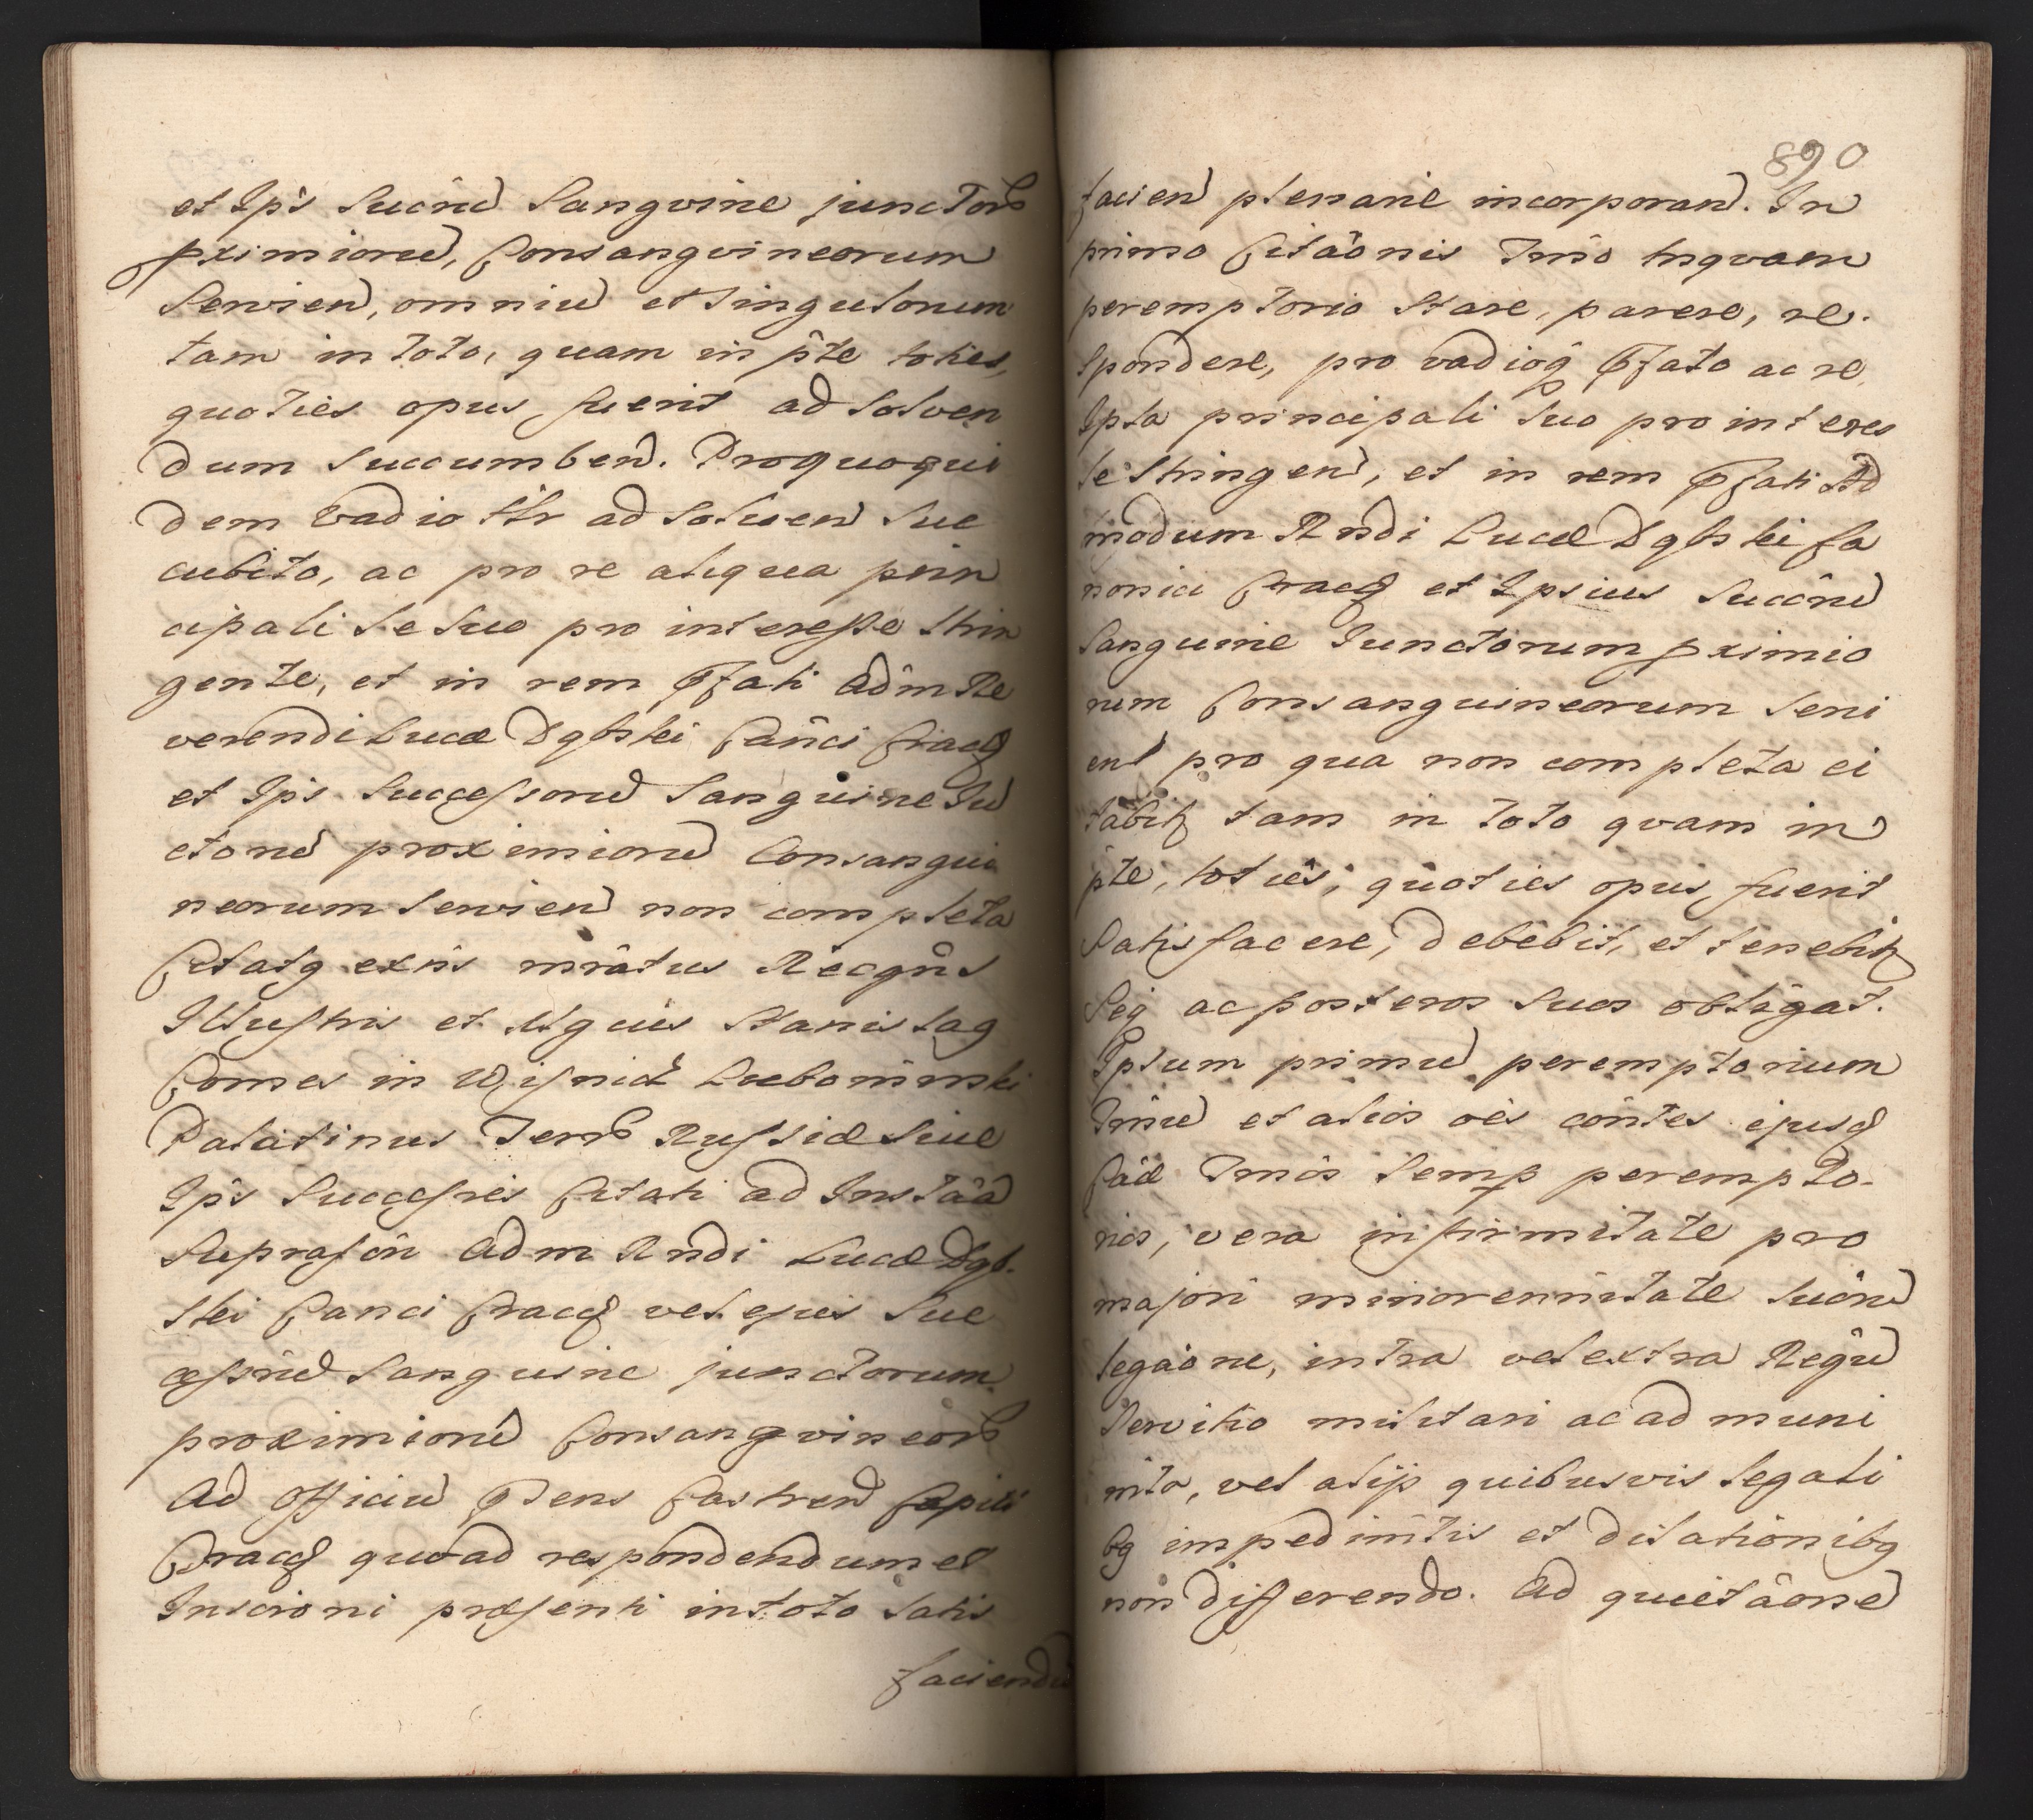 et Ips Sucrũ Sangvine junctorũ
pximiorũ, Consangvineorum
Servien, omniũ et Singulorum
tam in toto, quam in pte toties,
quoties opus fuerit ad solven
dum Succumben. Pro quo qui
dem Vadio ttr ad Soluen Suc
cubito, ac pro re aliqua prin
cipali Se Suo pro interesse Strin
gente, et in rem Pfati Adm Re
verendi Lucæ Dąbski Canci Crac
et Ips Successorũ Sanguine Iũ
ctorũ proximiorũ Consangui
neorum Servien non completa
Citatq exñs mratus Recgns
Illustris et Mgcus Stanislaq
Comes in Wisnicz Lubomirski
Palatinus Terrũ Russiæ Siue
Ips Succesres Citati ad Instaã
Suprascri Adm Rndi Lucæ Dąb.
ski Canci Crac vel ejus Suc
cessrũ Sanguine junctorum
proximiorũ Consangvineorũ
Ad Officiũ Pdens Castren Capit
Crac quoad respondendum et
Inscroni præsenti in toto Satis
faciendũ
890
facien plenarie incorporan. In
primo Citaõnis Trno tnqvam
peremptorio Stare, parere, re.
spondere, pro vadioq Pfato ac re
Ipsa principali Suo pro interes
se Stringen, et in rem Pfati Ad
modum Rndi Lucæ Dąbski Ca
nonici Crac et Ipsius Sucrũ
Sanguine Junctorum pximio
rum Consanguineorum Servi
ent pro qua non completa ci
tabit tam in toto qvam in
pte, toties, quoties opus fuerit
Satisfacere, debebit, et tenebit
Seq ac posteros Suos obligat.
Ipsum primũ peremptorium
Trnũ et alios oes cõntes ejusd
Cãæ Trnos Semp perempto.
rios, vera infirmitate pro
majori minorennitate Sucrũ
legaõne, intra vel extra Regũ
Servitio militari ac ad muni
mta, vel alijs quibusvis legali
bq impedimtis et dilationibq
non differendo. Ad quietaõnẽ